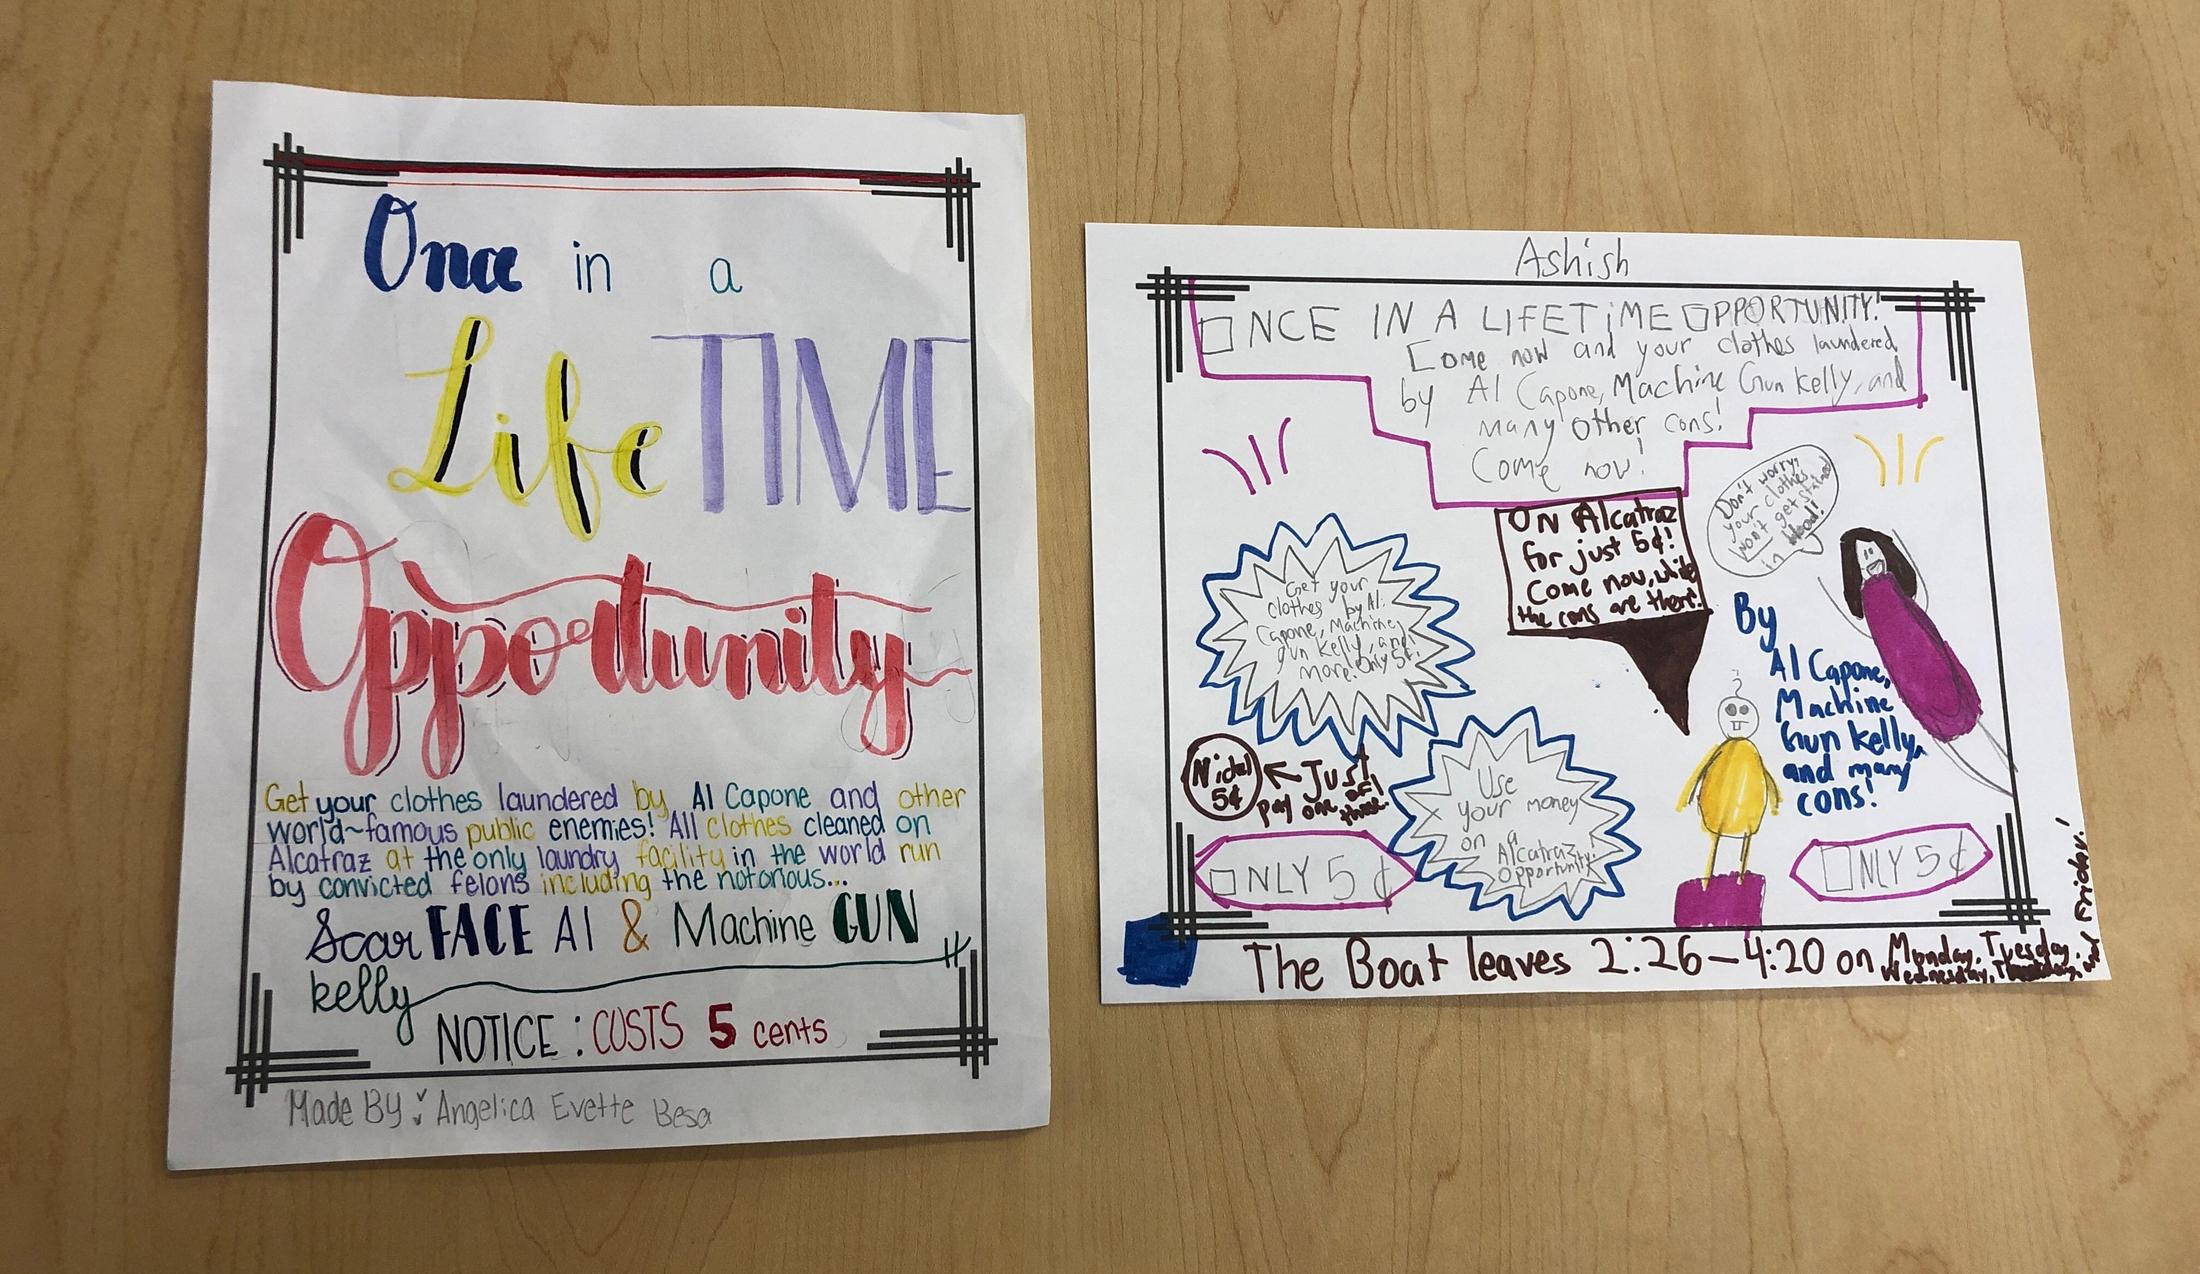 Once in a
LifeTIME
Opportunity
Get your clothes laundered by Al Capone and other
world~famous public enemies! All clothes cleaned on
Alcatraz at the only laundry facility in the world run
by convicted felons including the notorious...
ScarFACE Al & Machine GUN
kelly
NOTICE: COSTS 5 cents
Made BY: Angelica Evette Besa
Ashish
ONCE IN A LIFETiME OPPORTUNITY!
Come now and your clothes laundered
by Al Capone, Machine Gun Kelly, and
many other cons!
Come now!
ON Alcatraz
for just 5¢!
Come now, while
the cons are there!
Don't worry,
your clothes
won't get stained
in blood!
Get your
clothes by Al
Capone, Machine
gun kelly, and
more! Only 5¢!
By
Al Capone,
Machine
Gun kelly,
and many
cons!
Nickel
5¢
Just
pay one of
these.
Use
your money
on a
Alcatraz
Opportunity!
ONLY 5¢
ONLY 5¢
The Boat leaves 2:26-4:20 on Monday, Tuesday,
Wednesday, Thursday, and Friday!